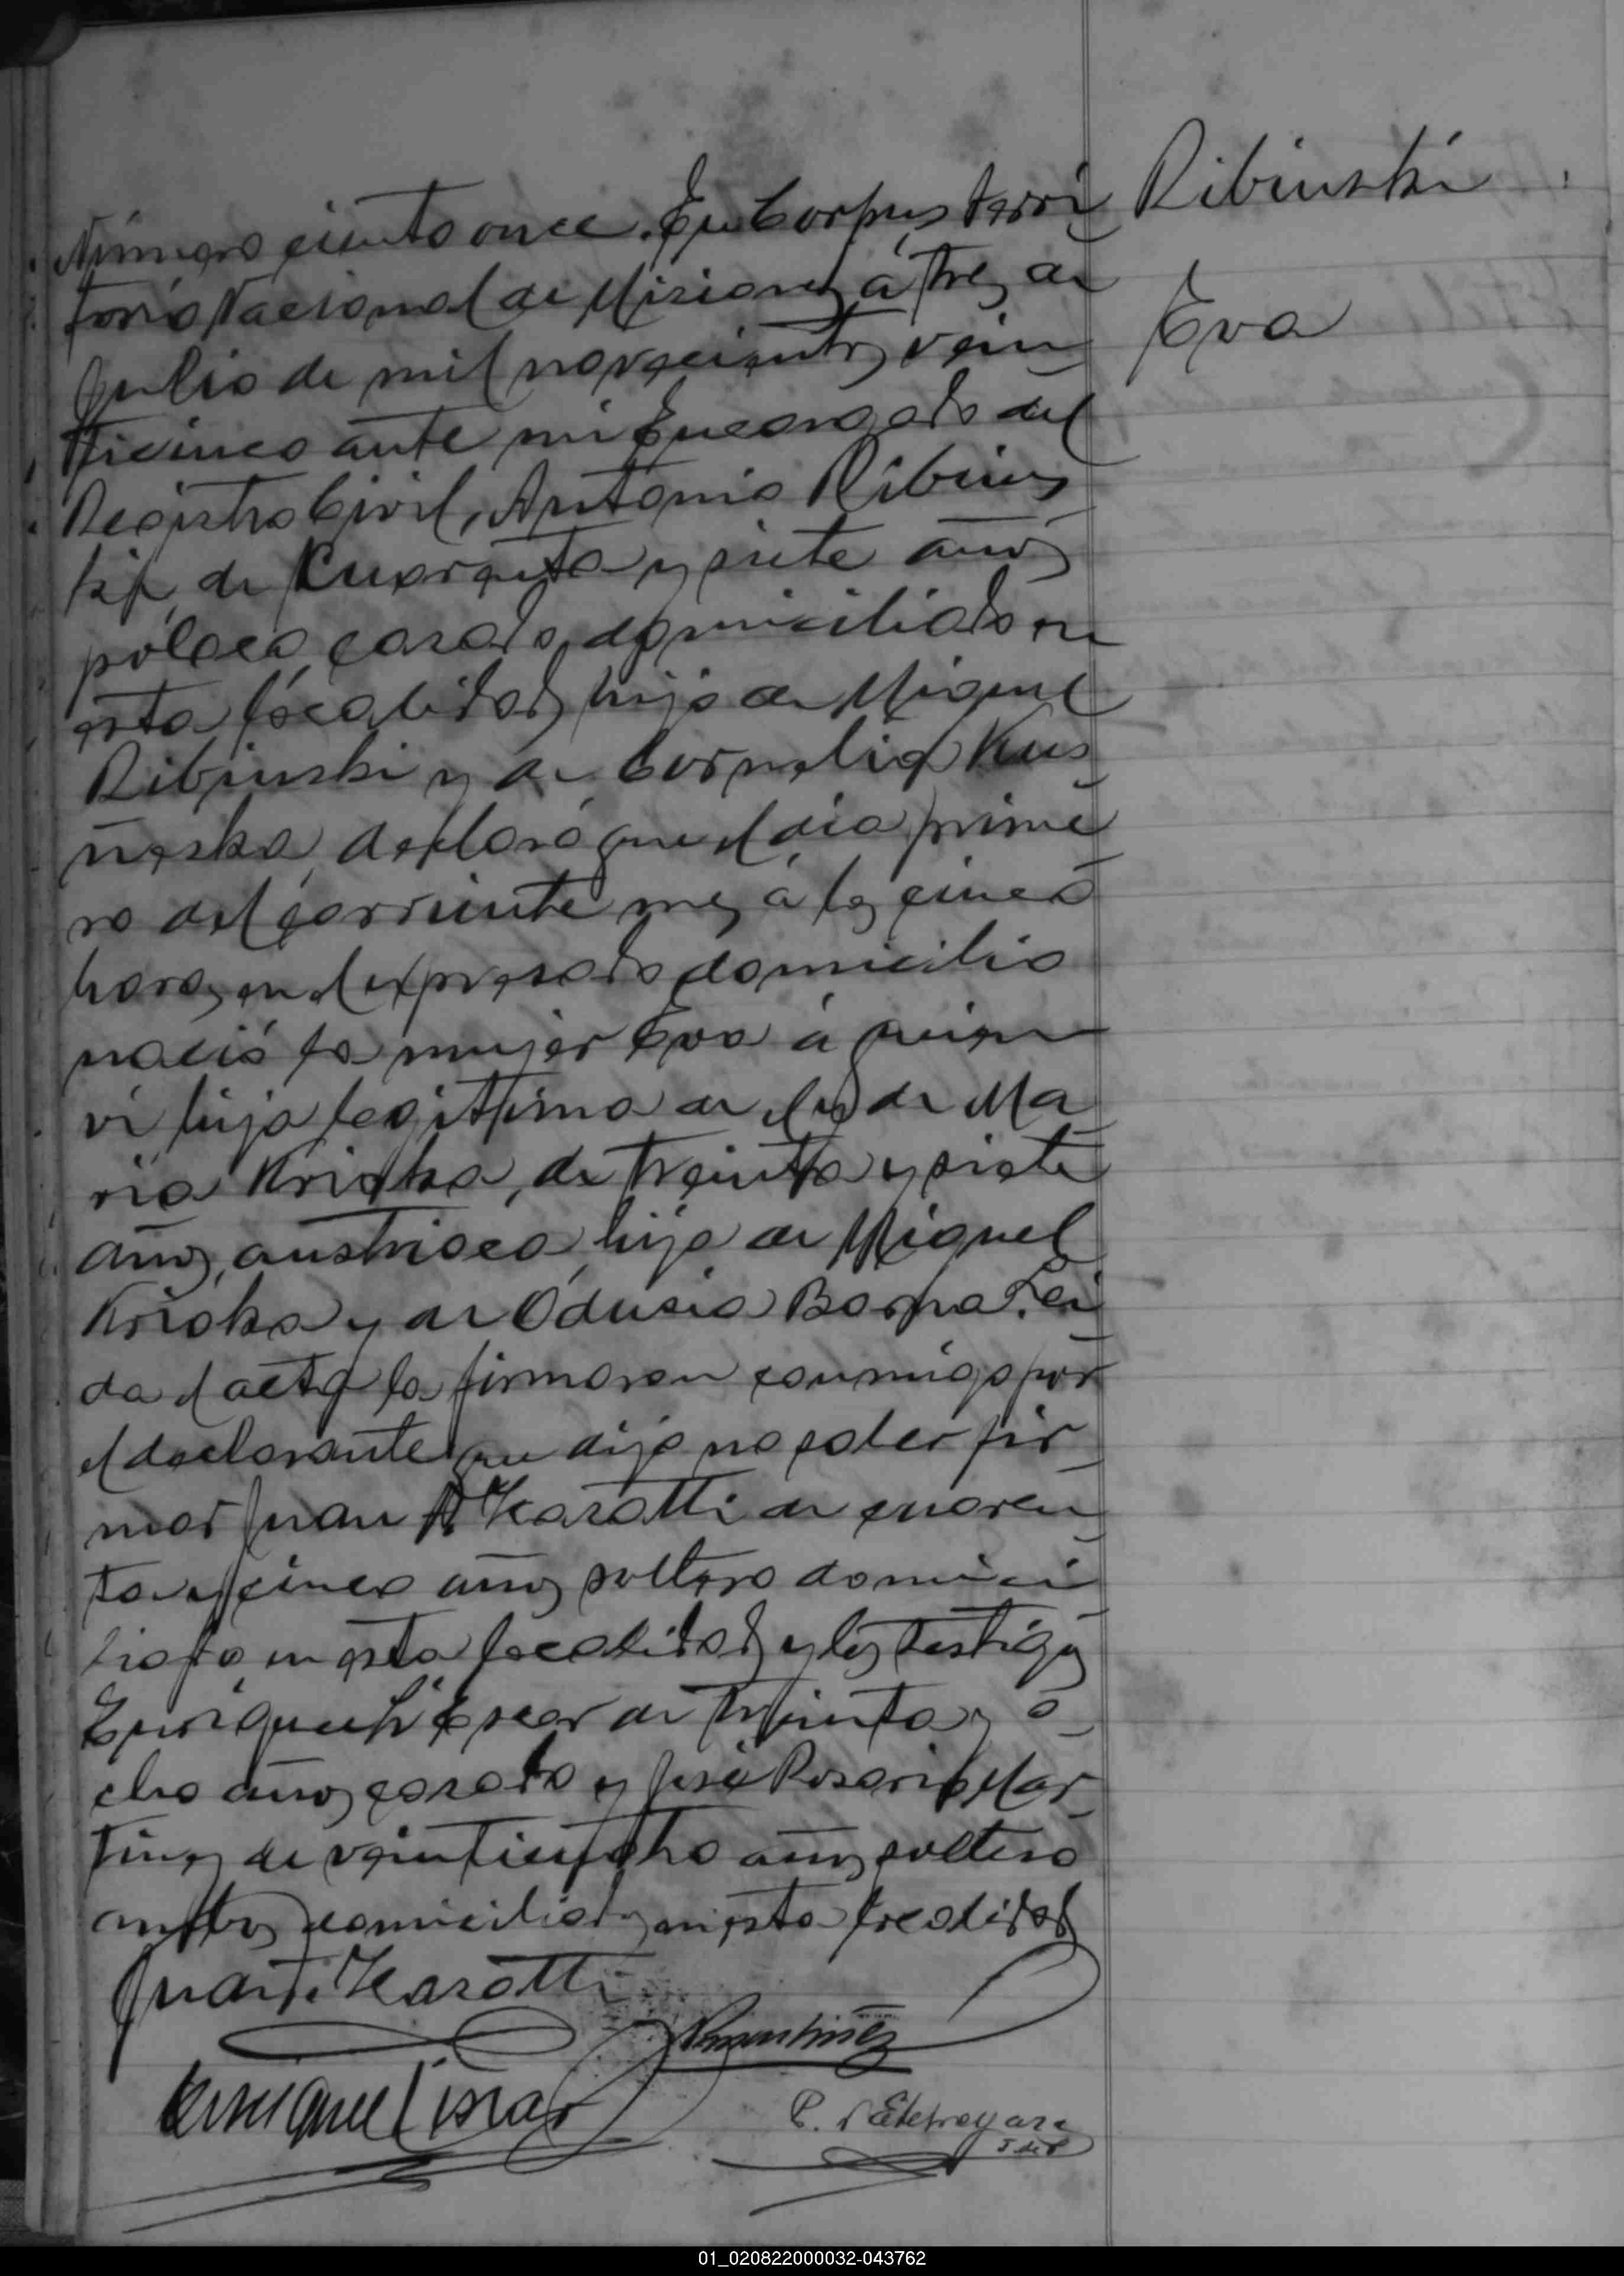 Ribinski
Eva
Número ciento once. En Corpus Terri
torio Nacional de Misiones á tres de
Julio de mil novecientos vein
ticinco ante mi Encargado del
Registro Civil, Antonio Ribins
ki, de Cuarenta y siete años
polaco, casado, domiciliado en
esta localidad, hijo de Miguel
Ribinski y de Cornelia Kus
ñeska, declaró que el dia prime
ro del corriente mes á las cinco
horas, en el expresado domicilio
nació la mujer Eva á quien
vi hija legitima de el y de Ma
ria Krioka, de treinta y siete
años, austriaca, hija de Miguel
Krioka y de Odusia Borna. Lei
da el acta la firmaron conmigo por
el declarante que dijo no saber fir
mar Juan Karatti de cuaren
ta y cinco años soltero domici
liado en esta localidad y los testigos
Enrique Escar de treinta y o
cho años casado y José Rosario Mar
tinez de veintiocho años soltero
ambos domiciliados en esta localidad
Juan Karatti
Rmartinez
Enrique Escar
P. Etchegaray
J de P
01_020822000032-043762